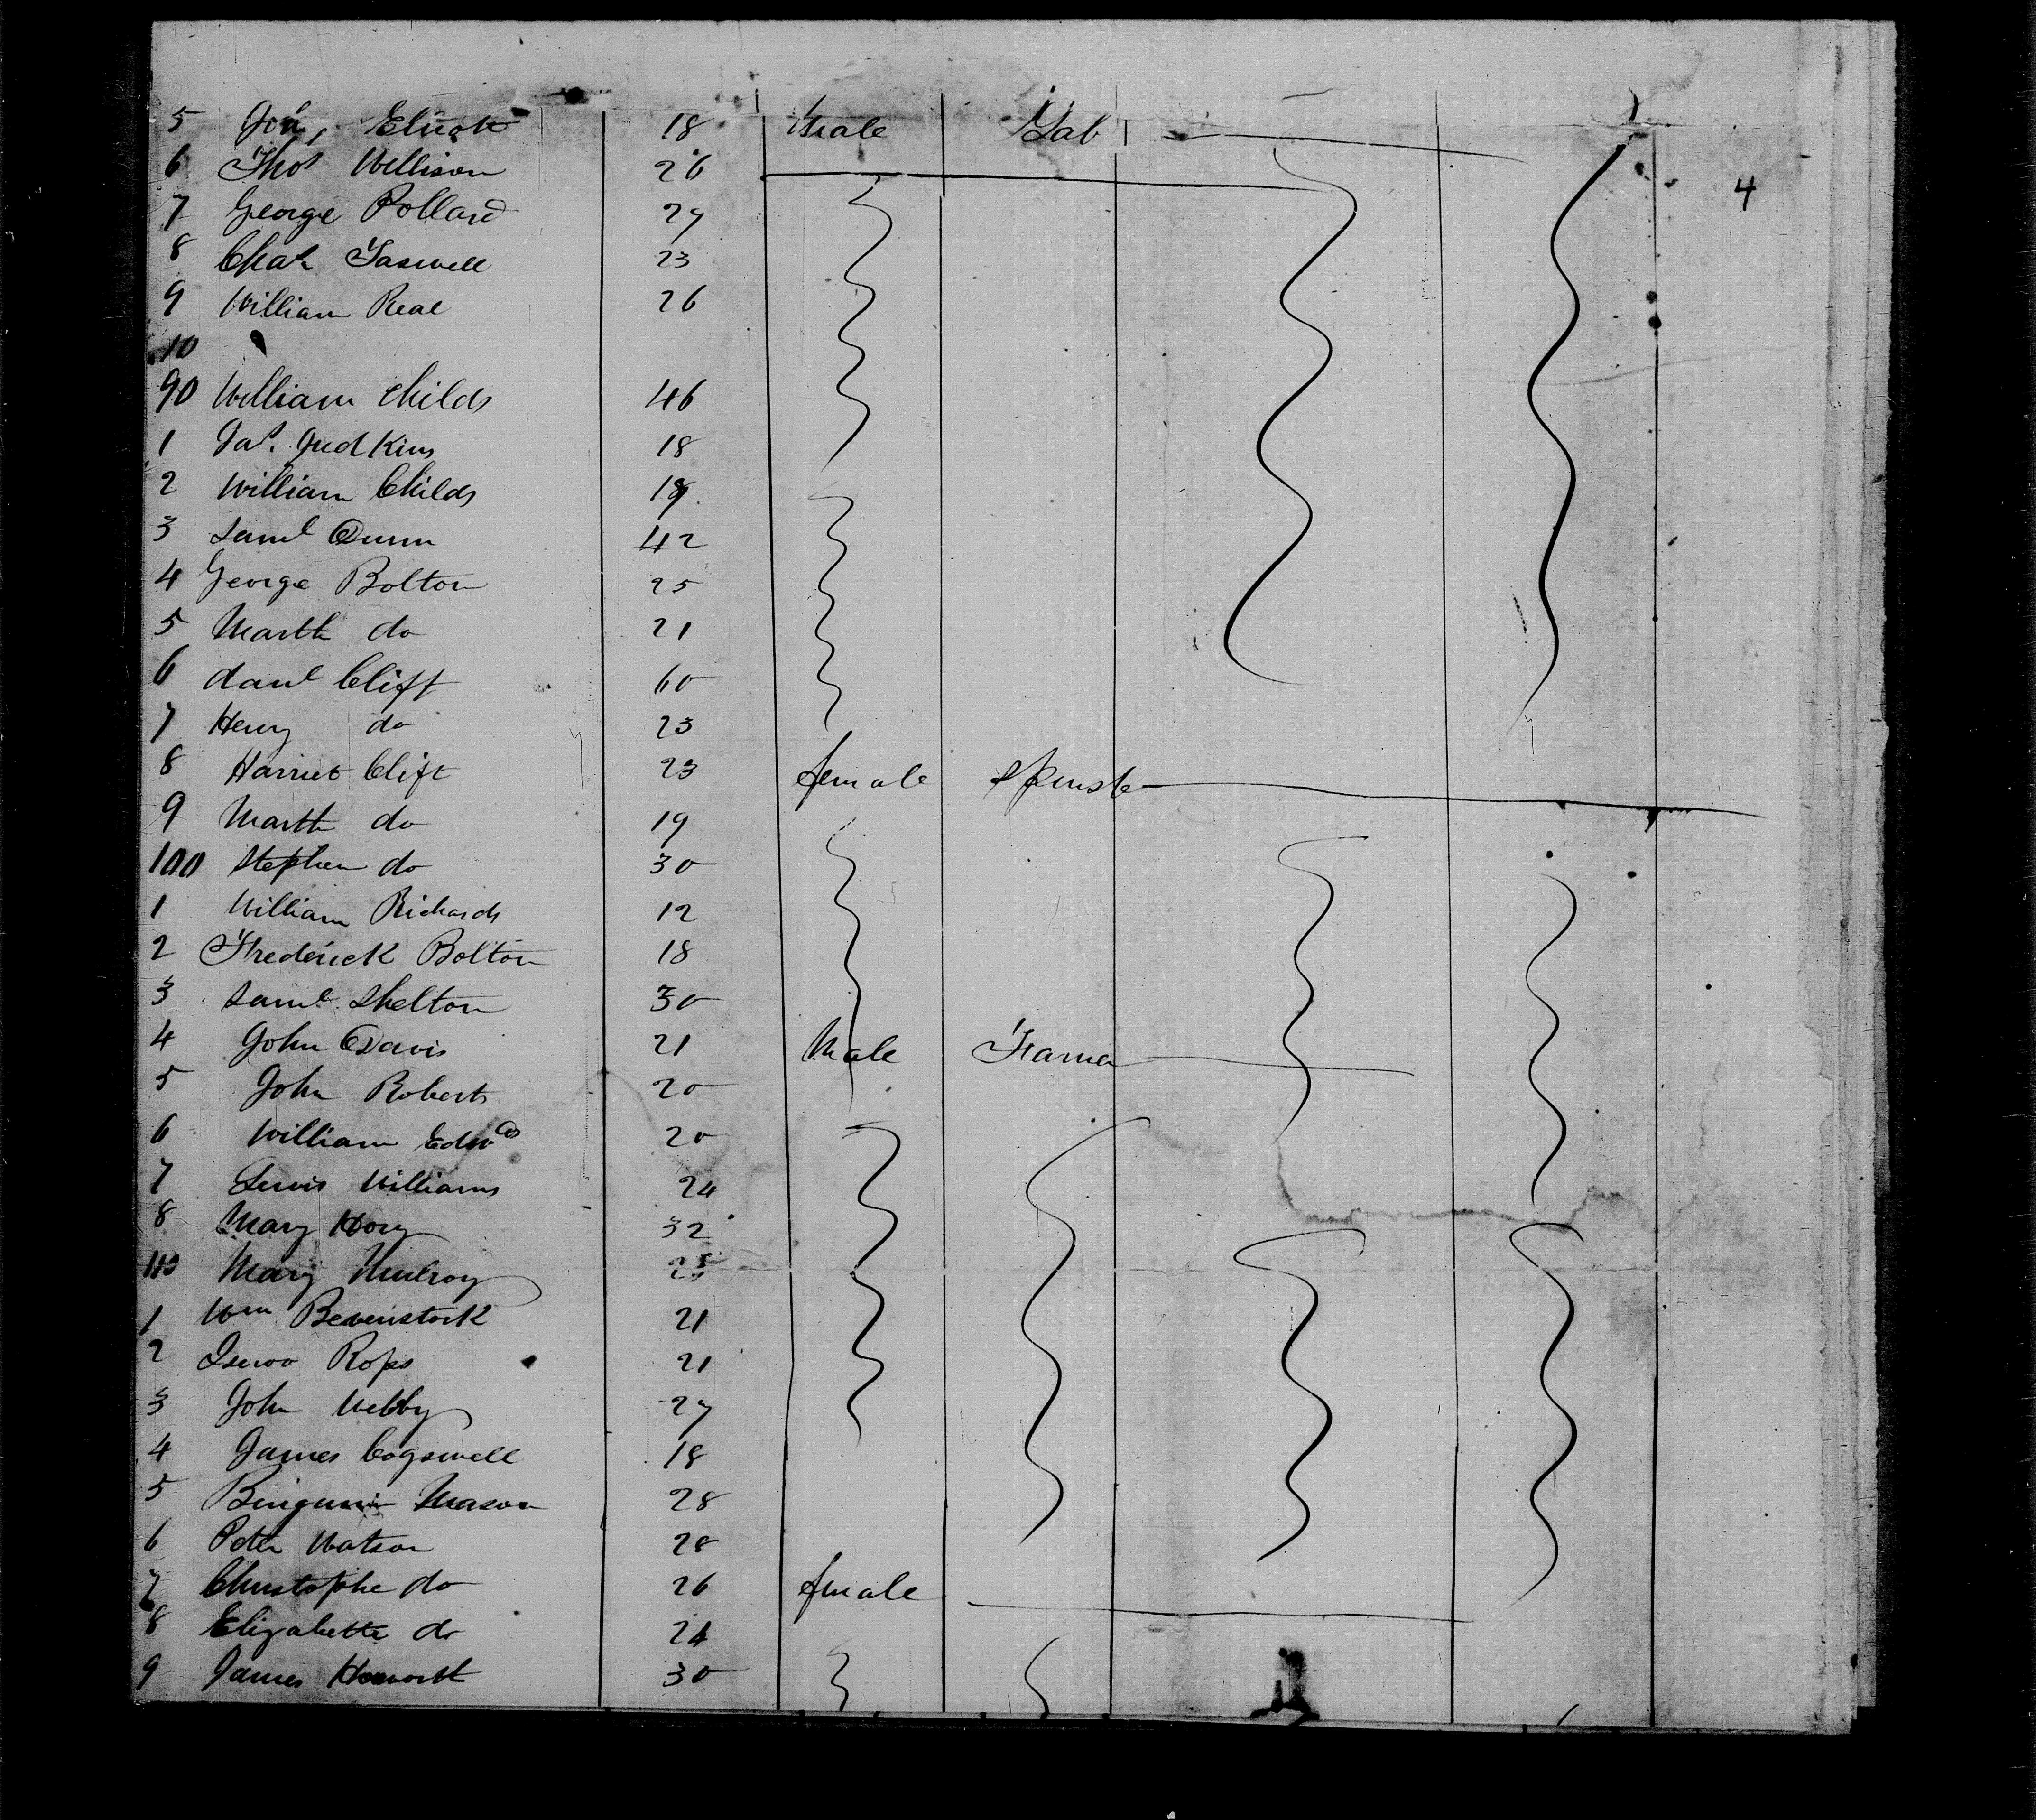 5 Jon, Eliott 18 Male Lab
4
6 Thos Wellison 26
7 George Pollard 27
8 Chas Taswell 23
9 William Real 26
10
90 William Childs 46
1 Jas. Judkins 18
2 William Childs 19
3 Saml Dunn 42
4 George Bolton 25
5 Marth do 21
6 danl Clift 60
7 Henry do 23
8 Harriet Clift 23 female Spinste
9 Marth do 19
100 Stephen do 30
1 William Richards 12
2 Frederick Bolton 18
3 Saml Shelton 30
4 John Davis 21 Male Farmer
5 John Roberts 20
6 William Edwds 20
7 Lewis Williams 24
8 Mary Hory 32
110 Mary Mulroy
1 Wm Bevenstock 21
2 Rops 21
3 John Webby 27
4 James Cogswell 18
5 Bingamin Mason 28
6 Peter Watson 28
7 Christophe do 26 female
8 Elizabette do 24
9 James Howorth 30